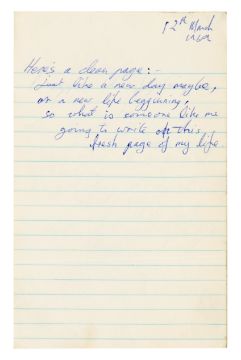 12th March
Here's a clean page:-
just like a new day maybe,
or a new life beginning,
so what is someone like me
going to write on this,
fresh page of my life